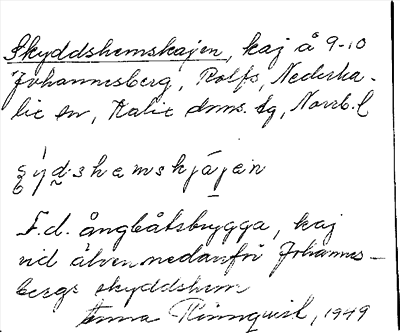 Skyddshemskajen, kaj å 9-10
Johannesberg, Rolfs, Nederka-
lix sn, Kalix dmns. tg, Norrb. l
ʃýd·shemskjájen
F.d. ångbåtsbrygga, kaj
vid älven nedanför Johannes-
bergs skyddshem
Anna Rönnqvist, 1949